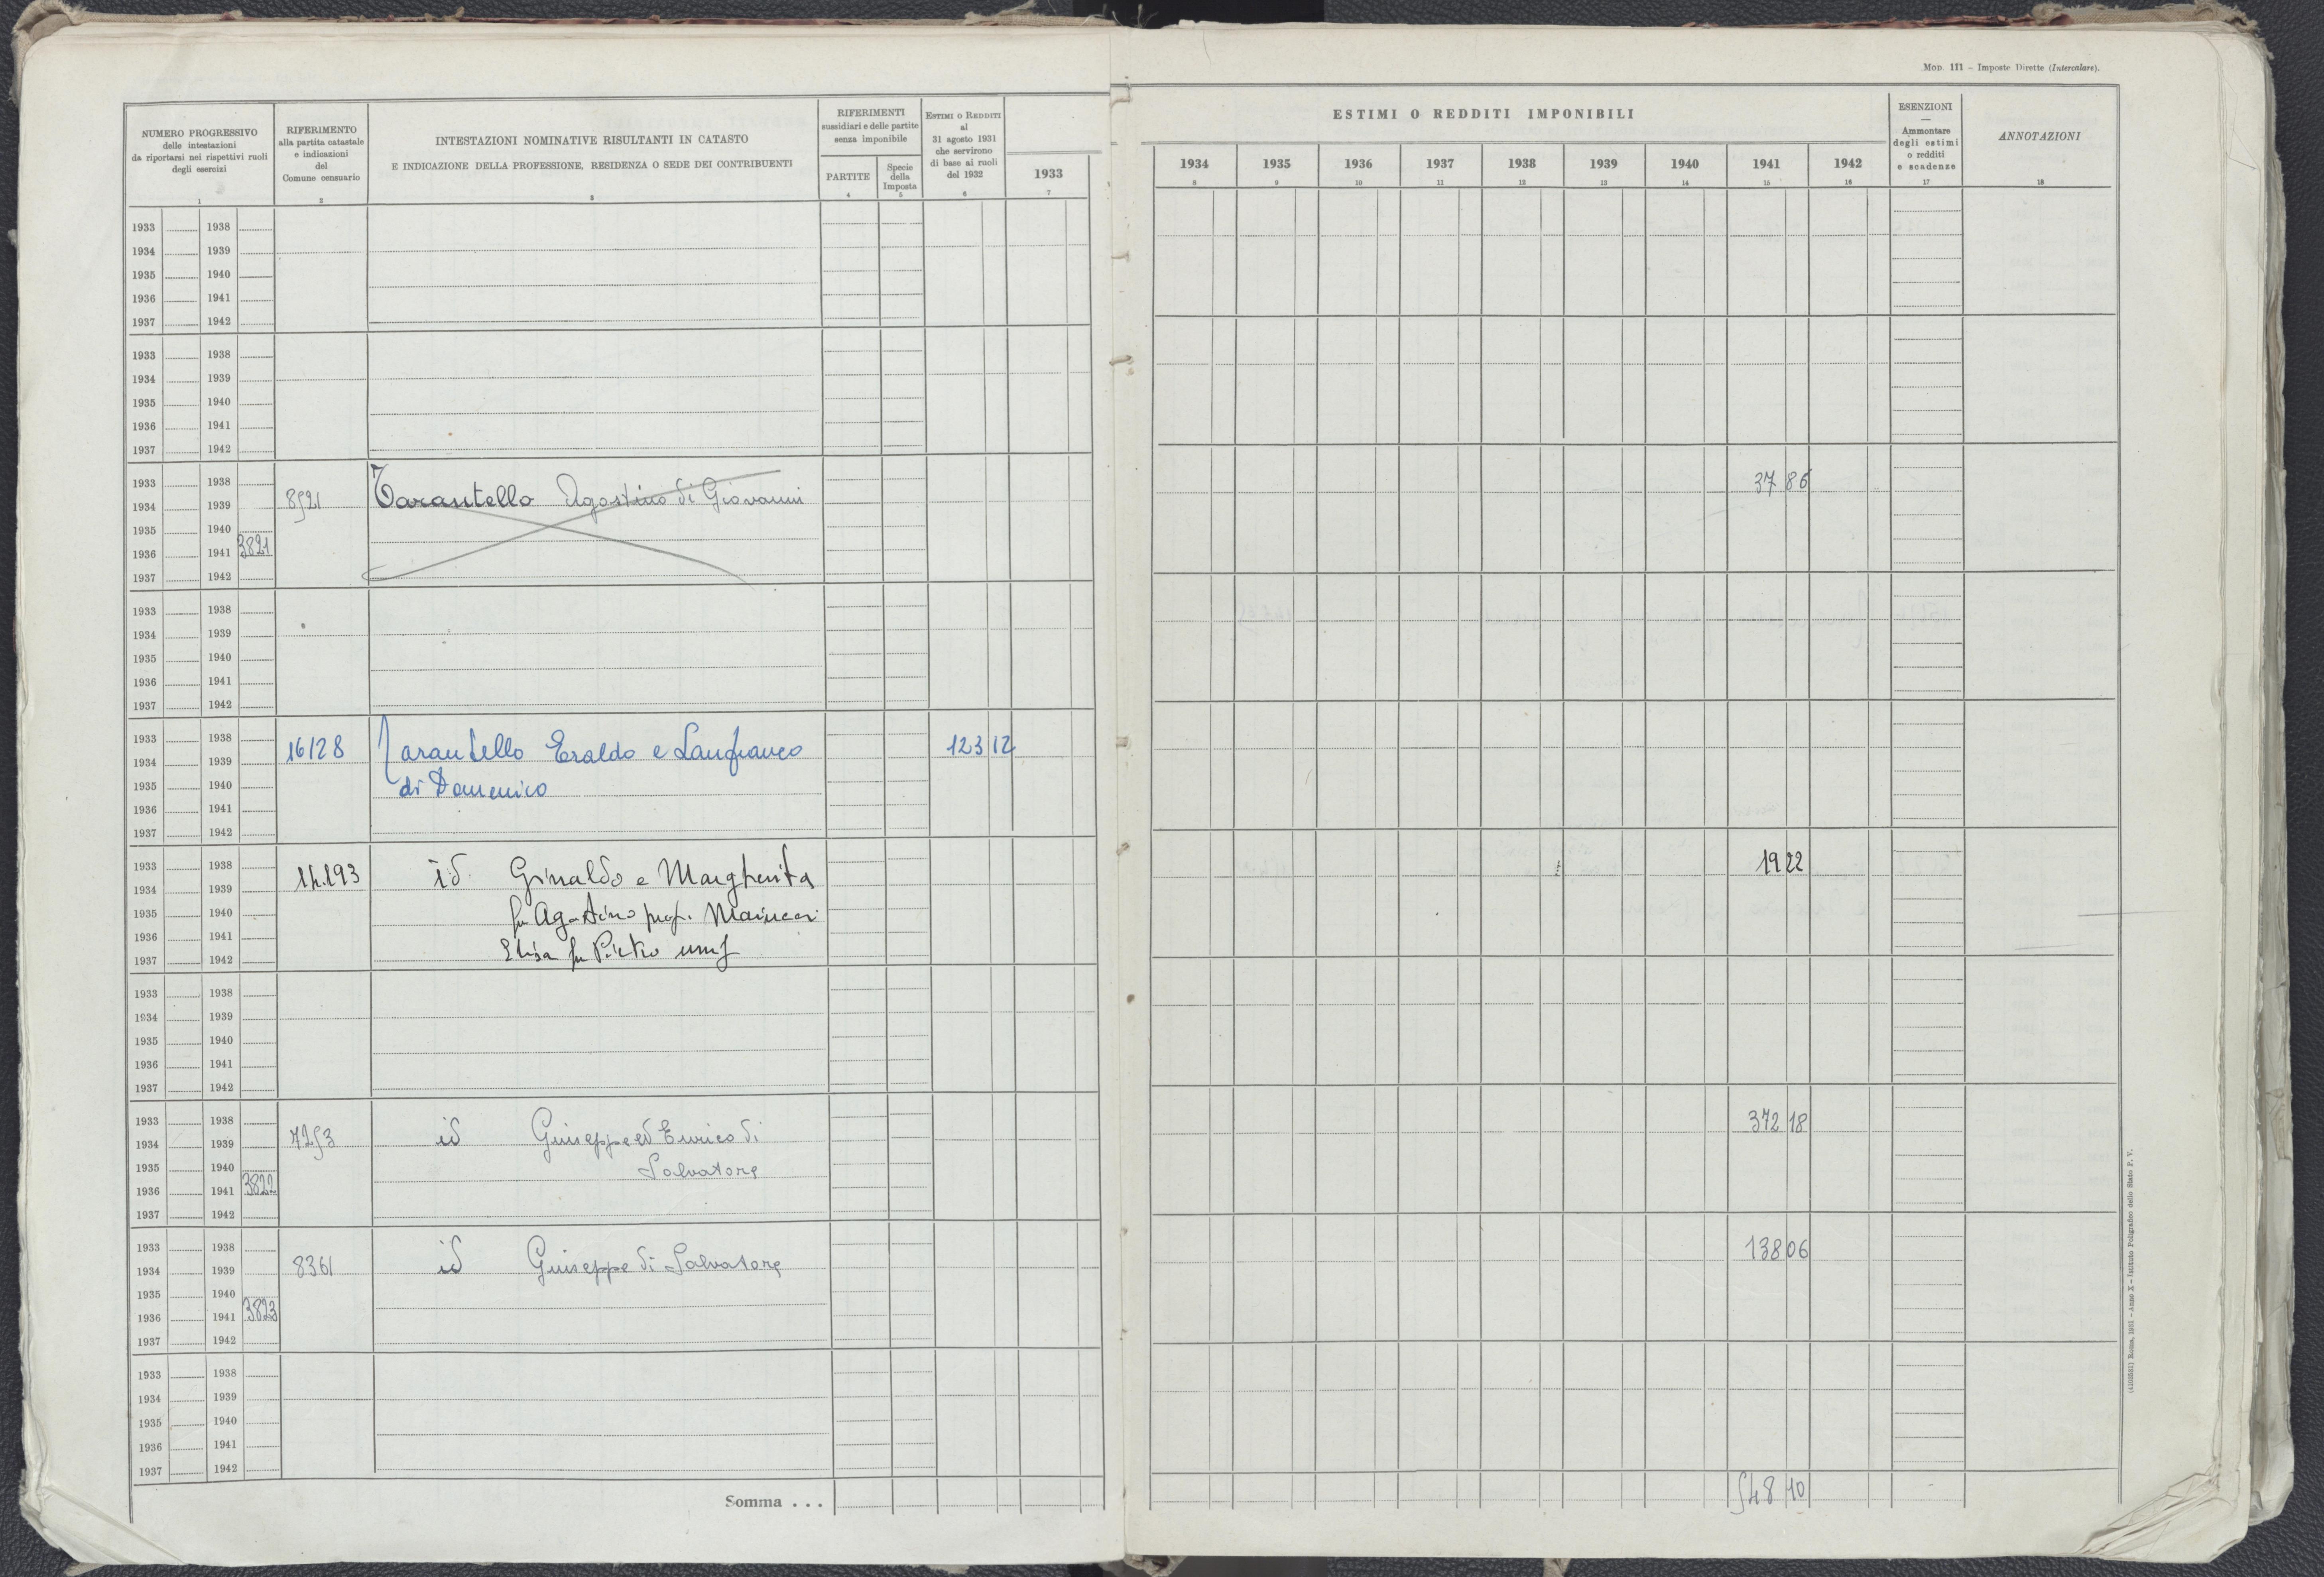 Mod. 111 – Imposte Dirette (Intercalare).
NUMERO PROGRESSIVO
delle intestazioni
da riportarsi nei rispettivi ruoli
degli esercizi
1
RIFERIMENTO
alla partita catastale
e indicazioni
del
Comune censuario
2
INTESTAZIONI NOMINATIVE RISULTANTI IN CATASTO
E INDICAZIONE DELLA PROFESSIONE, RESIDENZA O SEDE DEI CONTRIBUENTI
3
RIFERIMENTI
sussidiari e delle partite
senza imponibile
PARTITE
4
Specie
della
Imposta
5
Estimi o Redditi
al
31 agosto 1931
che servirono
di base ai ruoli
del 1932
6
1933
7
ESTIMI O REDDITI IMPONIBILI
1934 1935 1936 1937 1938 1939 1940 1941 1942
8 9 10 11 12 13 14 15 16
ESENZIONI
—
Ammontare
degli estimi
o redditi
e scadenze
17
ANNOTAZIONI
18
1933 1938
1934 1939
1935 1940
1936 1941
1937 1942
1933 1938
1934 1939
1935 1940
1936 1941
1937 1942
1933 1938 37 86
1934 1939 8521 Tarantello Agostino di Giovanni
1935 1940
1936 1941 3821
1937 1942
1933 1938
1934 1939
1935 1940
1936 1941
1937 1942
1933 1938
1934 1939 16128 Tarantello Eraldo e Lanfranco 123 12
1935 1940 di Domenico
1936 1941
1937 1942
1933 1938 19 22
1934 1939 14.193 id. Grinaldo e Margherita
1935 1940 fu Agostino prop.
1936 1941
1937 1942 Elisa fu Pietro usuf
1933 1938
1934 1939
1935 1940
1936 1941
1937 1942
1933 1938 372 18
1934 1939 7253 id Giuseppe ed Enrico di
1935 1940 Salvatore
1936 1941 3822
1937 1942
1933 1938 138 06
1934 1939 8361 id Giuseppe di Salvatore
1935 1940
1936 1941 3823
1937 1942
1933 1938
1934 1939
1935 1940
1936 1941
1937 1942
Somma . . . 548 10
(4100261) Roma, 1931 – Anno X – Istituto Poligrafico dello Stato P. V.